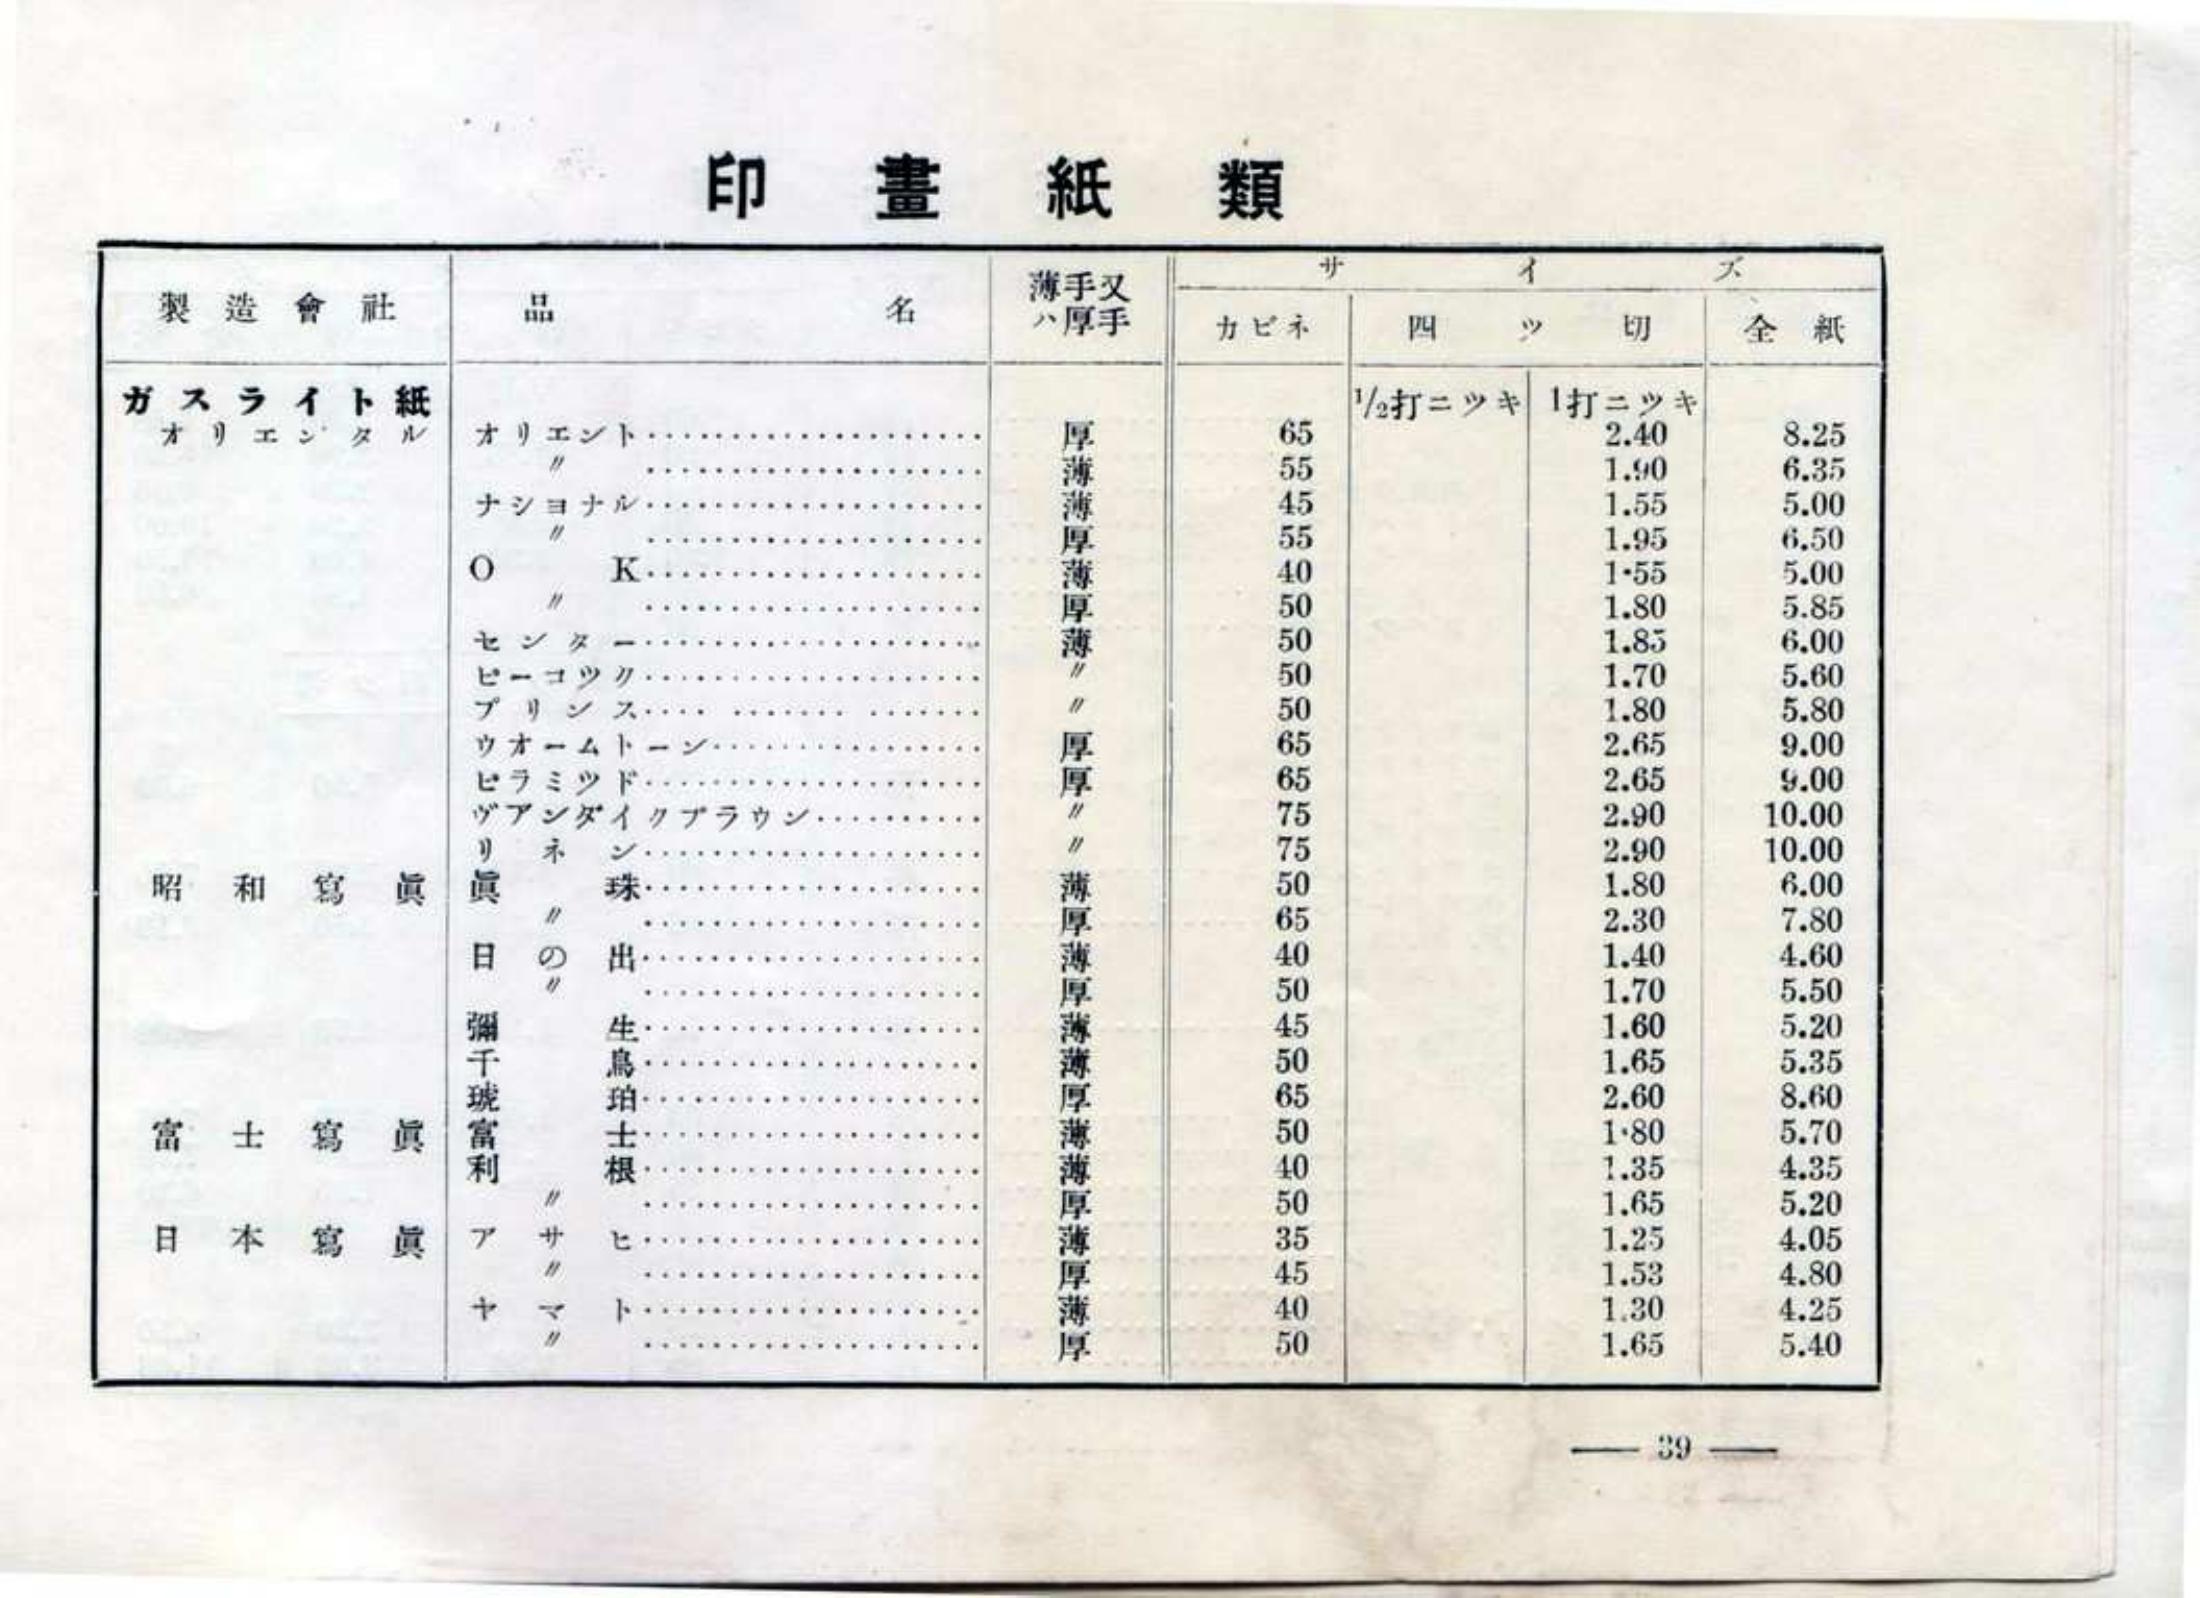 印畫紙類
製造會社 品名 薄手又ハ厚手 サイズ
カビネ 四ツ切 全紙
ガスライト紙 1/2打ニツキ 1打ニツキ
オリエンタル オリエント 厚 65 2.40 8.25
〃 薄 55 1.90 6.35
ナシヨナル 薄 45 1.55 5.00
〃 厚 55 1.95 6.50
OK 薄 40 1·55 5.00
〃 厚 50 1.80 5.85
センター 薄 50 1.85 6.00
ピーコツク 〃 50 1.70 5.60
プリンス 〃 50 1.80 5.80
ウオームトーン 厚 65 2.65 9.00
ピラミツド 厚 65 2.65 9.00
ヴアンダイクブラウン 〃 75 2.90 10.00
リネン 〃 75 2.90 10.00
昭和寫眞 眞珠 薄 50 1.80 6.00
〃 厚 65 2.30 7.80
日の出 薄 40 1.40 4.60
〃 厚 50 1.70 5.50
彌生 薄 45 1.60 5.20
千鳥 薄 50 1.65 5.35
琥珀 厚 65 2.60 8.60
富士寫眞 富士 薄 50 1·80 5.70
利根 薄 40 1.35 4.35
〃 厚 50 1.65 5.20
日本寫眞 アサヒ 薄 35 1.25 4.05
〃 厚 45 1.53 4.80
ヤマト 薄 40 1.30 4.25
〃 厚 50 1.65 5.40
— 39 —